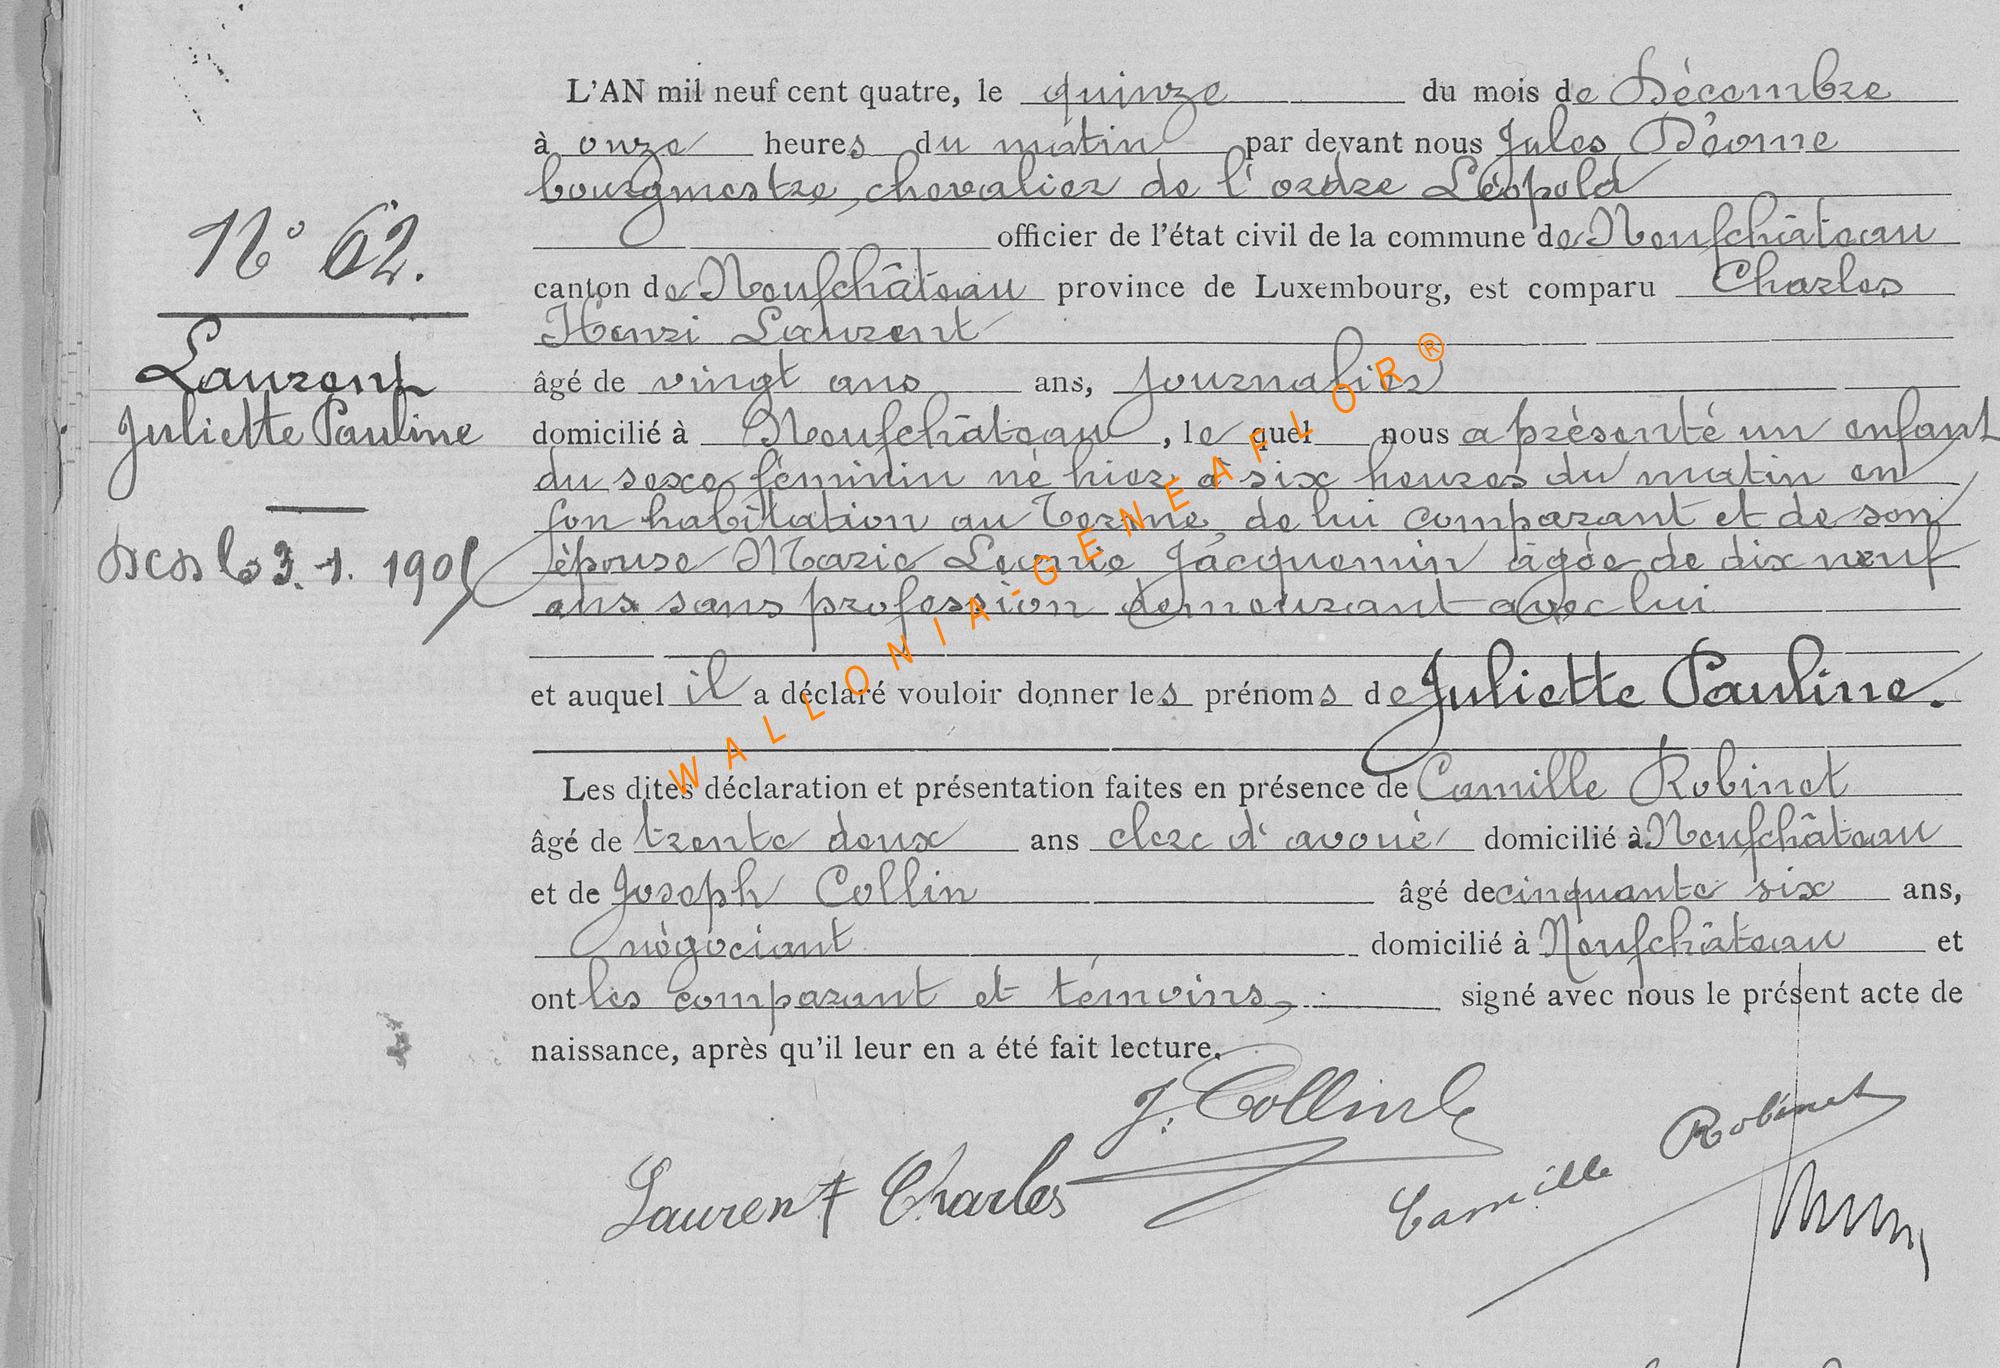 N° 62.
Laurent
Juliette Pauline
le 3.-1. 1905
L'AN mil neuf cent quatre, le quinze du mois de Décembre
à onze heures du matin par devant nous Jules
bourgmestre, chevalier de l'ordre Léopold
officier de l'état civil de la commune de Neufchâteau
canton de Neufchâteau province de Luxembourg, est comparu Charles
Henri Laurent
âgé de vingt ans ans, journalier
domicilié à Neufchâteau, le quel nous a présenté un enfant
du sexe féminin né hier à six heures du matin en
son habitation au Terme, de lui comparant et de son
épouse Marie Leonie Jacquemin âgée de dix neuf
ans sans profession demeurant avec lui
et auquel il a déclaré vouloir donner les prénoms de Juliette Pauline.
Les dites déclaration et présentation faites en présence de Camille Robinet
âgé de trente deux ans clerc d'avoué domicilié à Neufchâteau
et de Joseph Collin âgé de cinquante six ans,
négociant domicilié à Neufchâteau et
ont les comparant et témoins, signé avec nous le présent acte de
naissance, après qu'il leur en a été fait lecture.
J. Collin
Laurent Charles
Camille Robinet
WALLONIA-GENEAFLOR®